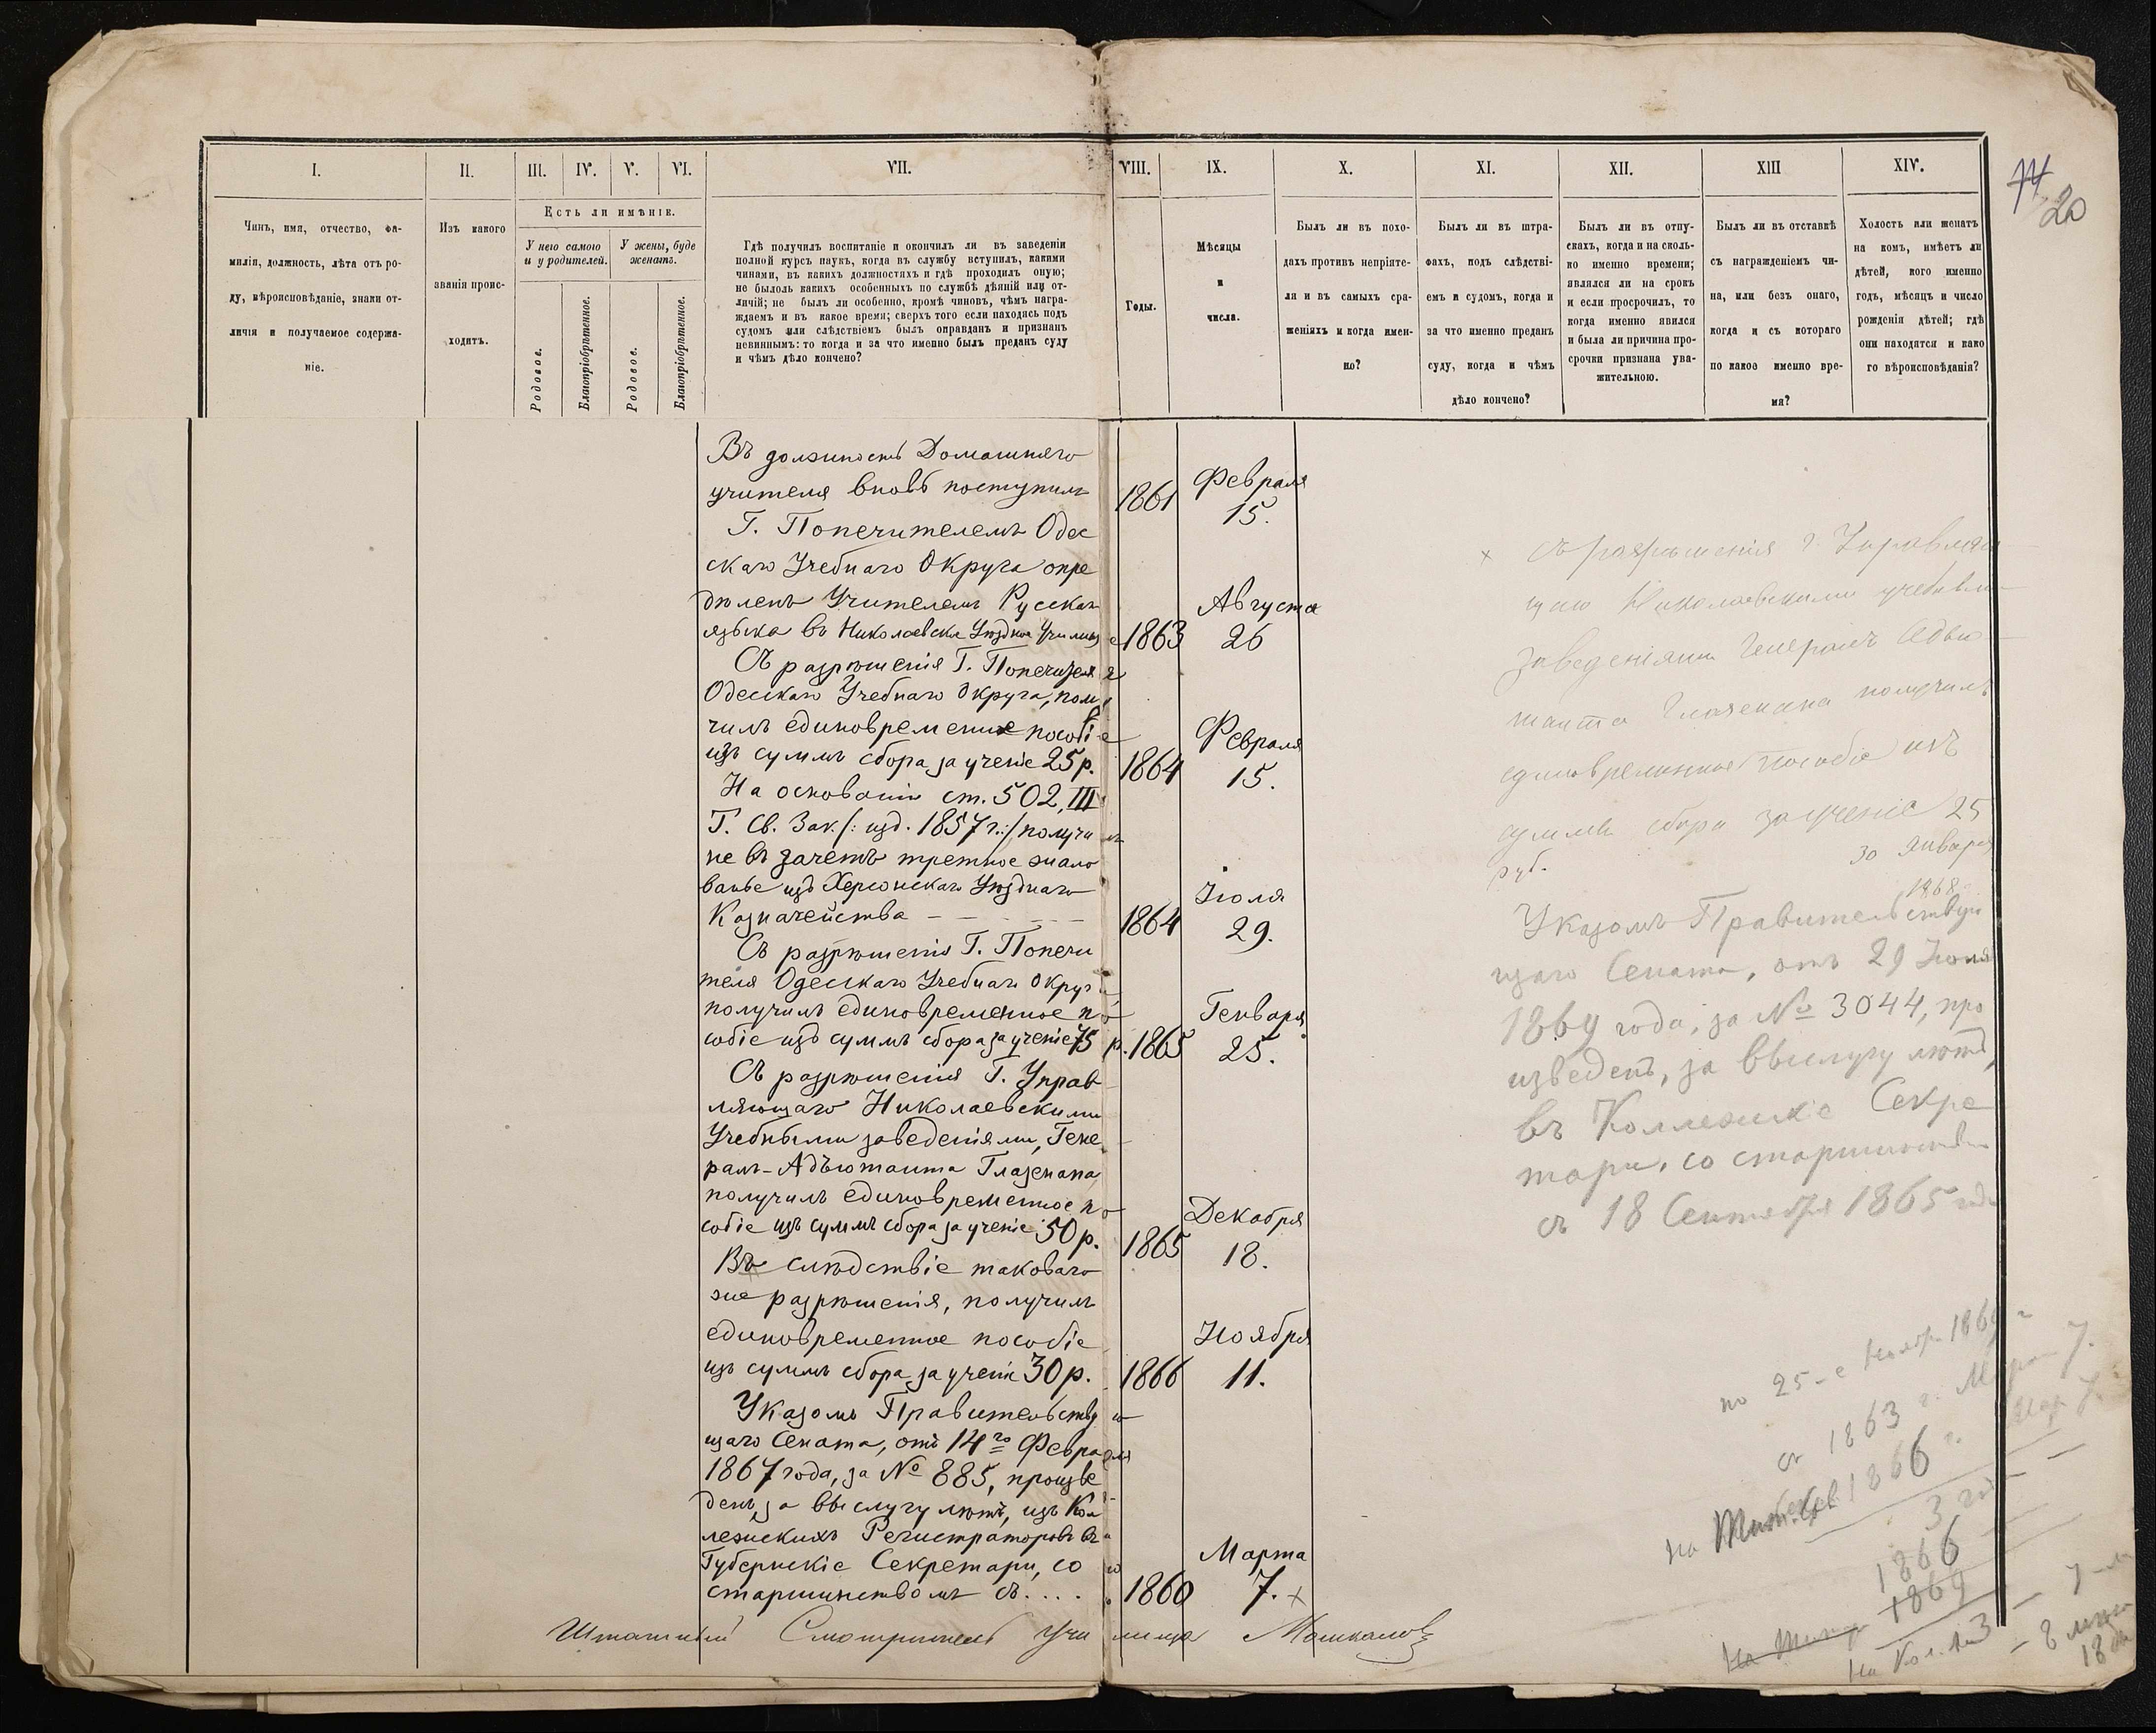 I. II. III. IV. V. VI. VII. VIII. IX. X. XI. XII. XIII XIV.
74
20
Чинъ, имя, отчество, фа-
милія, должность, лѣта отъ ро-
ду, вѣроисповѣданіе, знаки от-
личія и получаемое содержа-
ніе.
Изъ какого
званія проис-
ходитъ.
Есть ли имѣніе.
У него самою
и у родителей.
У жены, буде
женатъ.
Родовое.
Благопріобрѣтенное.
Родовое.
Благопріобрѣтенное.
Гдѣ получилъ воспитаніе и окончилъ ли въ заведеніи
полной курсъ наукъ, когда въ службу вступилъ, какими
чинами, въ какихъ должностяхъ и гдѣ проходилъ оную;
не былоль какихъ особенныхъ по службѣ дѣяній или от-
личій; не былъ ли особенно, кромѣ чиновъ, чѣмъ награ-
ждаемъ и въ какое время; сверхъ того если находясь подъ
судомъ или слѣдствіемъ былъ оправданъ и признанъ
невиннымъ: то когда и за что именно былъ преданъ суду
и чѣмъ дѣло кончено?
Годы.
Мѣсяцы
и
числа.
Былъ ли въ похо-
дахъ противъ непріяте-
ля и въ самыхъ сра-
женіяхъ и когда имен-
но?
Былъ ли въ штра-
фахъ, подъ слѣдстві-
емъ и судомъ, когда и
за что именно преданъ
суду, когда и чѣмъ
дѣло кончено?
Былъ ли въ отпу-
скахъ, когда и на сколь-
ко именно времени;
являлся ли на срокъ
и если просрочилъ, то
когда именно явился
и была ли причина про-
срочки признана ува-
жительною.
Былъ ли въ отставкѣ
съ награжденіемъ чи-
на, или безъ онаго,
когда и съ котораго
по какое именно вре-
мя?
Холостъ или женатъ
на комъ, имѣетъ ли
дѣтей, кого именно
годъ, мѣсяцъ и число
рожденія дѣтей; гдѣ
они находятся и како
го вѣроисповѣданія?
Въ должность Домашняго
учителя вновь поступилъ
1861 Февраля 15.
Г. Попечителемъ Одес
скаго Учебнаго Округа опре
дѣленъ Учителемъ Русскаго
языка въ Николаевское Уѣздное Училище
1863 Августа 26
Съ разрѣшенія Г. Попечителя
Одесскаго Учебнаго Округа, полу
чилъ единовременное пособіе
изъ суммъ сбора за ученіе 25 р.
1864 Февраля 15.
На основаніи ст. 502, III
Т. Св. Зак. /: изд. 1857 г.:/ получилъ
не въ зачетъ третное жало
ванье изъ Херсонскаго Уѣзднаго
Казначейства
1864 Іюля 29.
Съ разрѣшенія Г. Попечи
теля Одесскаго Учебнаго Округа,
получилъ единовременное по
собіе изъ суммъ сбора за ученіе 75 р.
1865 Генваря 25.
Съ разрѣшенія Г. Управ
ляющаго Николаевскими
Учебными заведеніями, Гене
ралъ-Адъютанта Глазенапа,
получилъ единовременное по
собіе изъ суммъ сбора за ученіе 50 р.
1865 Декабря 18.
Въ слѣдствіе таковаго
же разрѣшенія, получилъ
единовременное пособіе
изъ суммъ сбора за ученіе 30 р.
1866 Ноября 11.
Указомъ Правительствую
щаго Сената, отъ 14го Февраля
1867 года, за № 885, произве
денъ, за выслугу лѣтъ, изъ Кол
лежскихъ Регистраторовъ въ
Губернскіе Секретари, со
старшинствомъ съ. . . .
1860 Марта 7. +
Штатный Смотритель Училища Мошкаловъ
+ Съ разрѣшенія г. Управляю
щаго Николаевскими учебными
заведеніями Генералъ Адъю
танта Глазенапа получилъ
единовременное пособіе изъ
суммъ сбора за ученіе 25
руб. 30 Января
1868
Указомъ Правительствую
щаго Сената, отъ 29 Іюля
1869 года, за № 3044, про
изведенъ, за выслугу лѣтъ,
въ Коллежскіе Секре
тари, со старшинствомъ
съ 18 Сентября 1865 года
по 25-е Ноябр. 1869 г
съ 1863 г. Марта 7.
1866 г. Мар. 7.
3 год
1866
1869
3